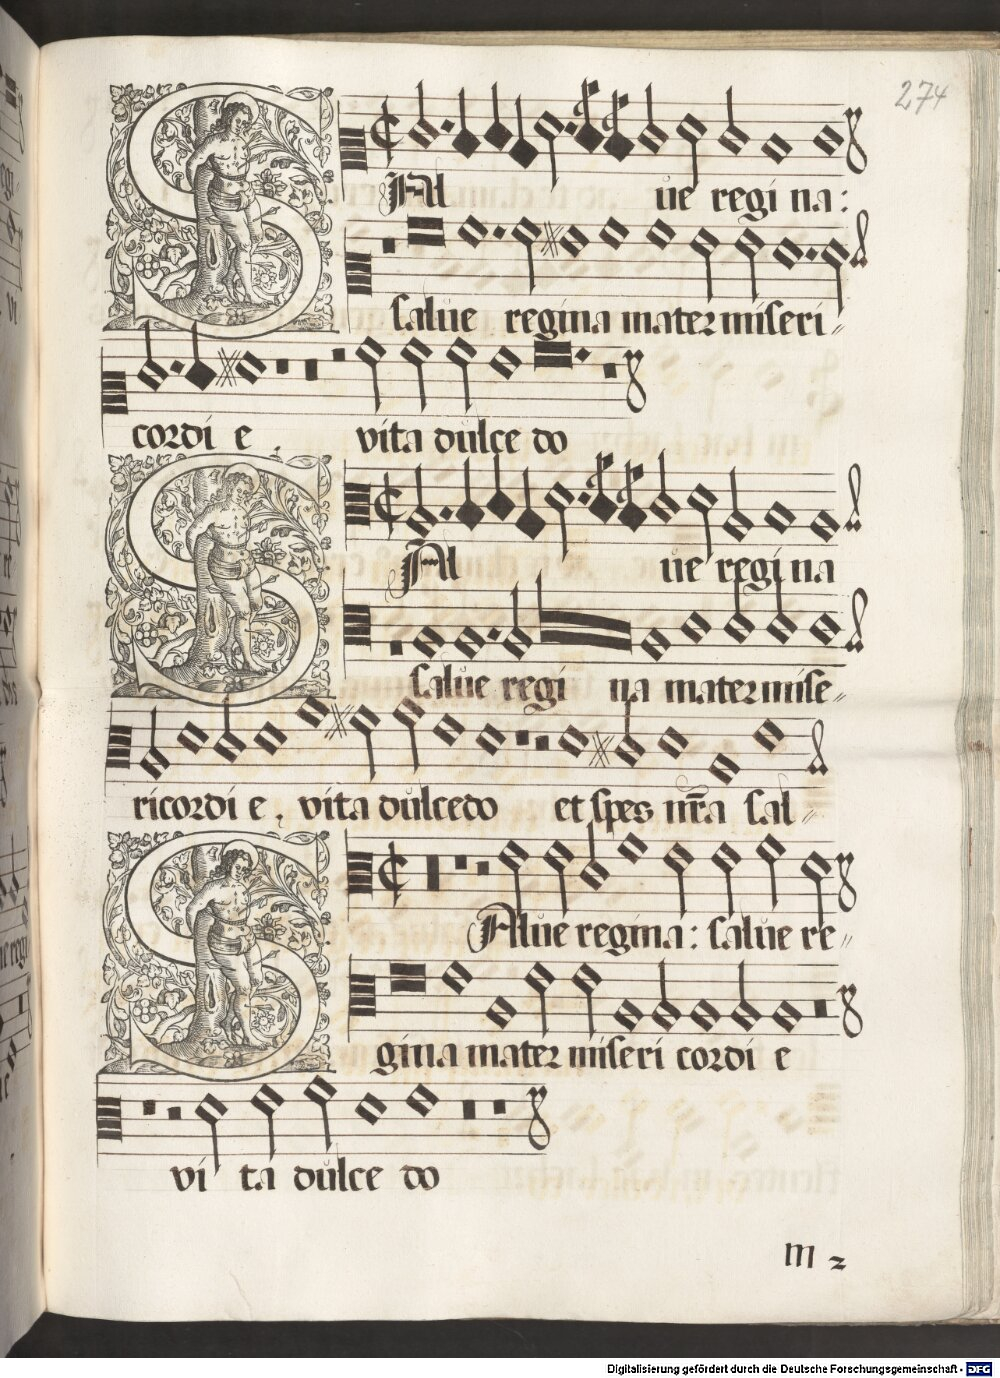 274
SAl ue regi na:
salue regina mater miseri〃
cordi e . vita dulce do
SAl ue regi na
salue regi na mater mise〃
ricordi e . vita dulcedo et spes nr̄a sal〃
SAlue regina: salue re〃
gina mater miseri cordi e
vi ta dulce do
m 2
Digitalisierung gefördert durch die Deutsche Forschungsgemeinschaft - DFG